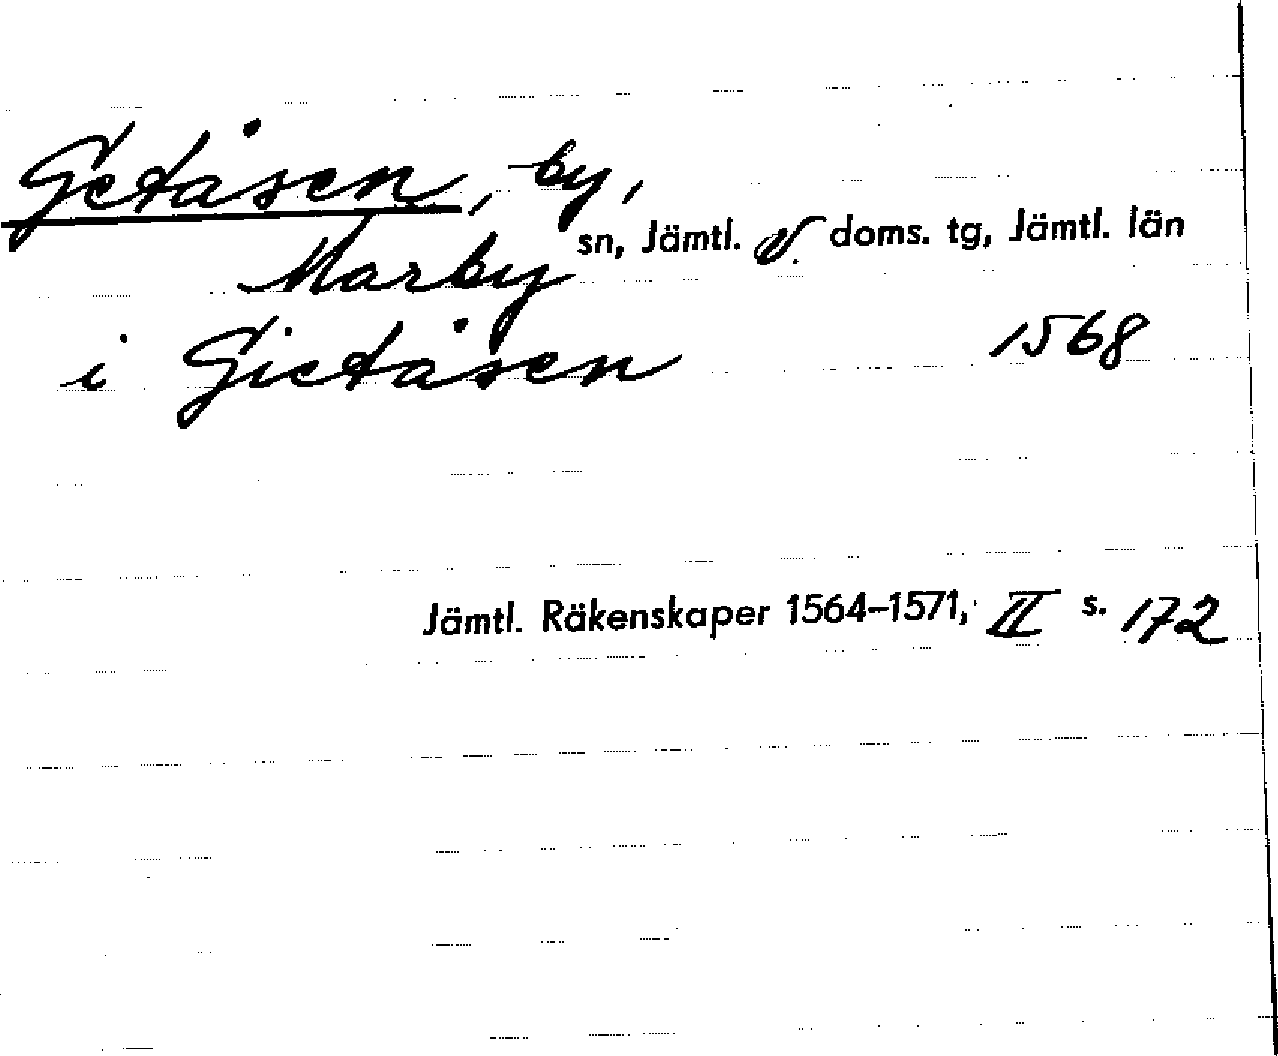 Getåsen, by,
Marby sn, Jämtl. v. doms. tg, Jämtl. län
i Gietåsen 1568
Jämtl. Räkenskaper 1564–1571, II s. 172